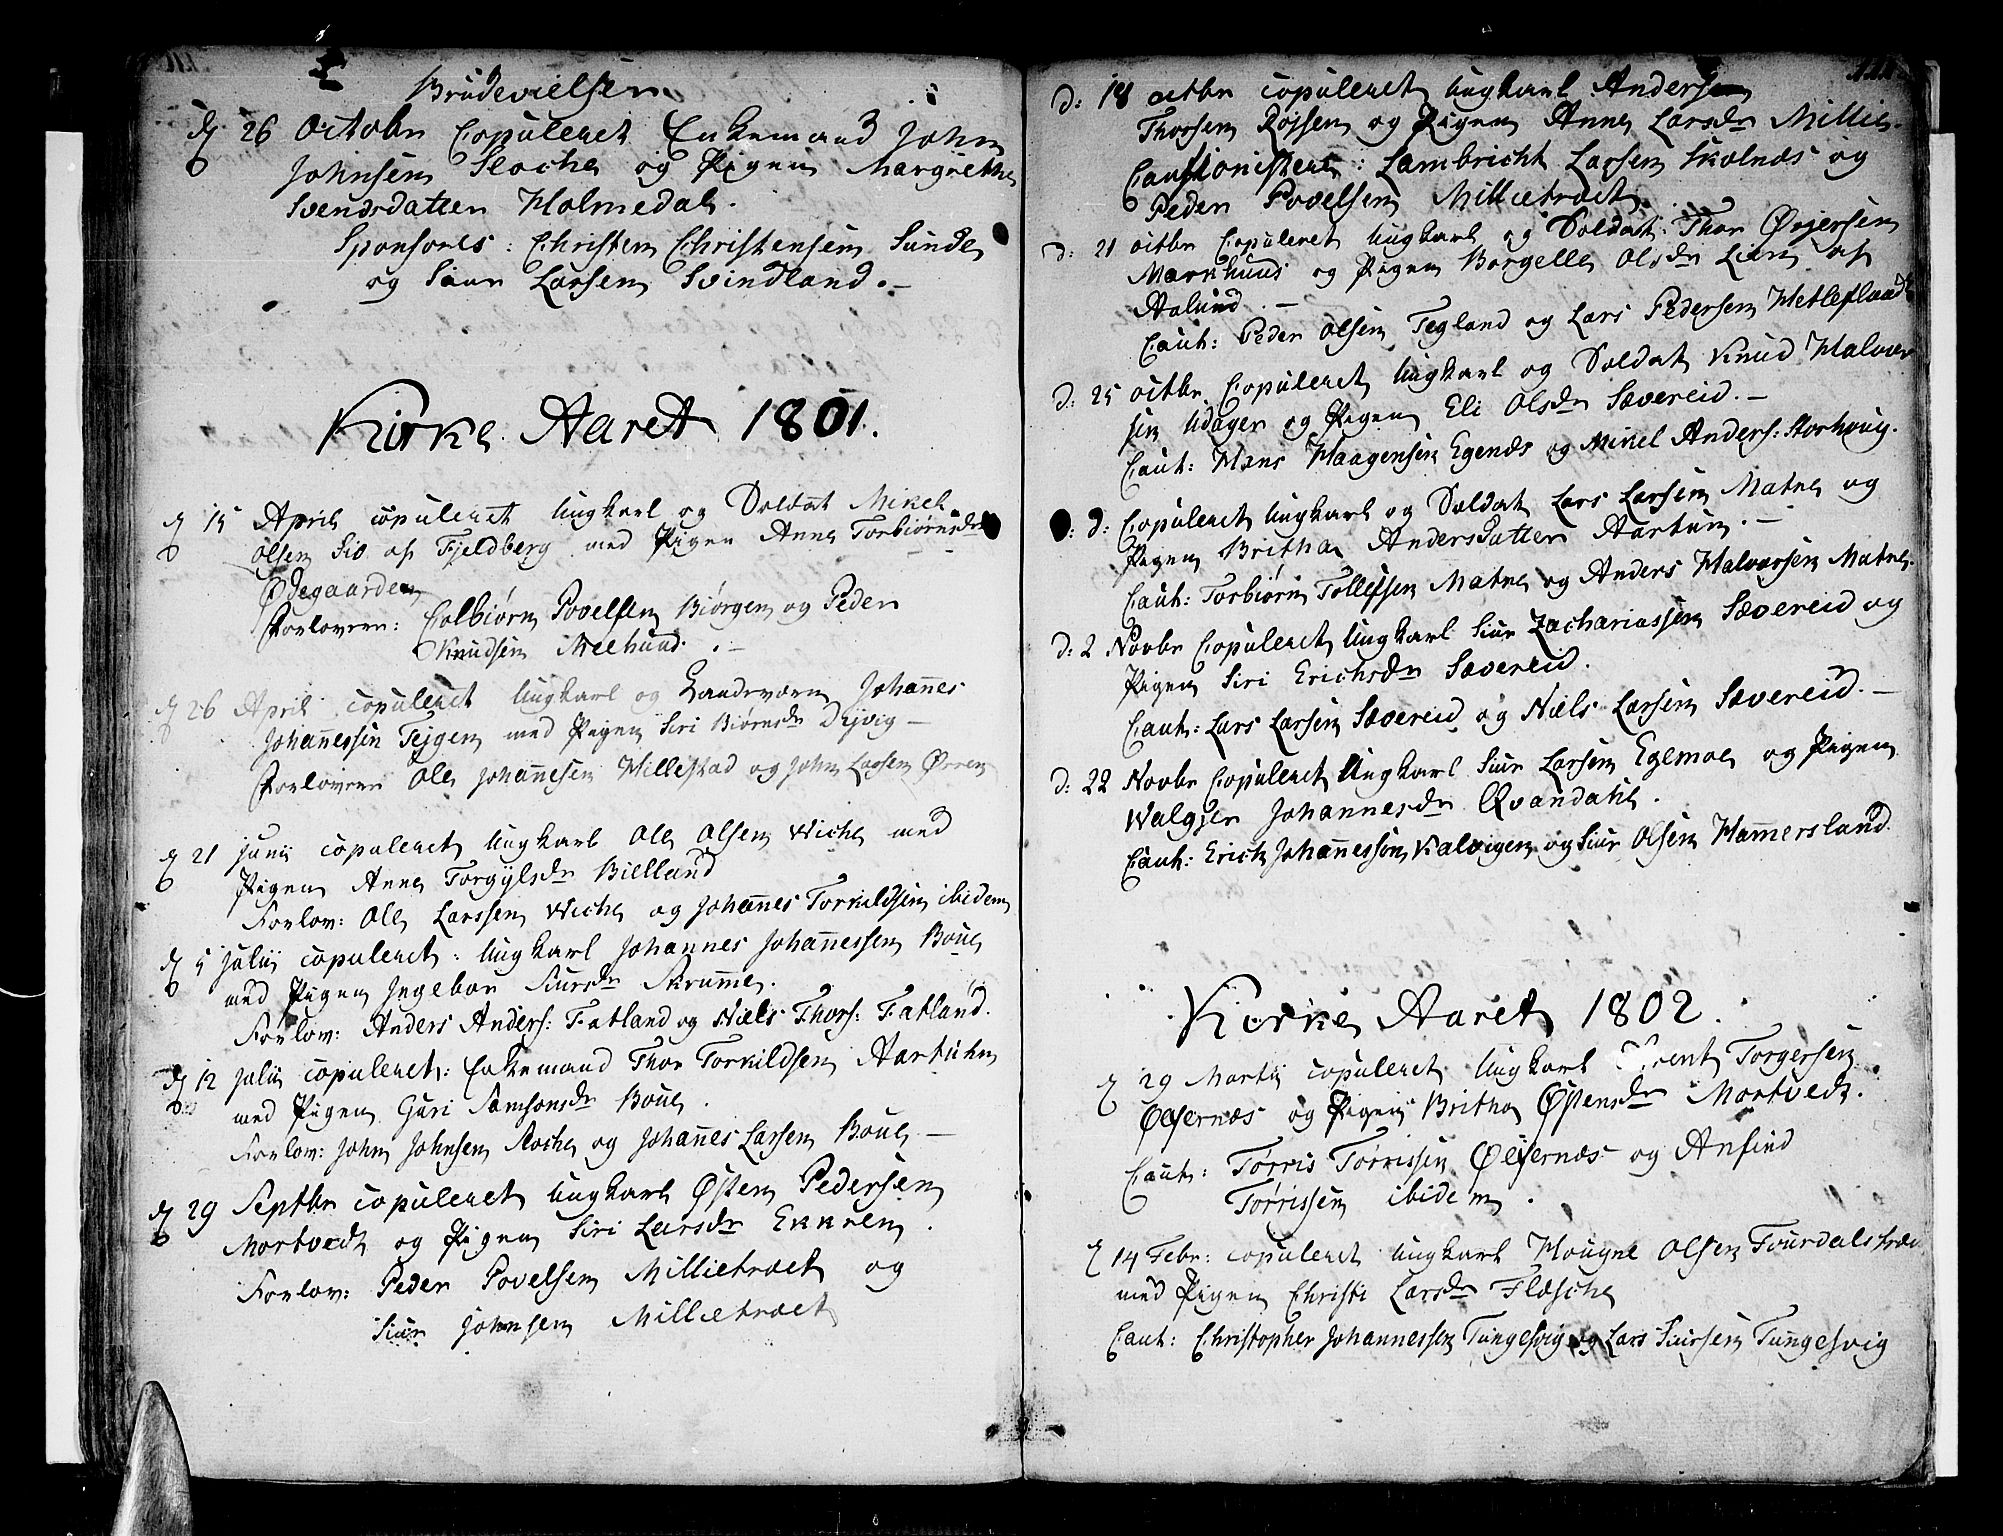 Brudevielsen
26 Octobr Copuleret Enkemand John
Johnsen Stoche og Pigen Margrethe
Svendsdatter Holmedal.
Sponsores: Christen Christensen Sunde
og Siur Larsen Svindland.
Kirke Aaret 1801.
15 April copuleret Ungkarl og Soldat Mikel
Olsen Sio af Fjeldberg med Pigen Anna Torbiørnsdr
Ødegaarden
Forlovere: Colbiørn Povelsen Biørgen og Peder
Knudsen
26 April copuleret Ungkarl og Landeværn Johannes
Johannessen Tejgen med Pigen Siri Biørnsdr
Forlovere Ole Johannesen Millestad og John Larsen Ørren
21 Junii copuleret Ungkarl Ole Olsen Wiche med
Pigen Anne Torgylsdr Bielland
Forlov: Ole Larssen Wiche og Johannes Torkildsen ibidem
5 Julii copuleret: Ungkarl Johannes Johannessen Boue
med Pigen Ingebor Siursdr Skrumme.
Forlov: Anders Anders: Fatland og Niels Thors: Fatland.
12 Julii copuleret: Enkemand Thor Torkildsen Aartuhn
med Pigen Guri Samsonsdr Boue.
Forlov: John Johnsen Stoche og Johannes Larsen Boue
29 Septbr copuleret Ungkarl Østen Pedersen
Mortvedt og Pigen Siri Larsdr Ekkren.
Forlov: Peder Povelsen Millietræet og
Siur Johnsen Millietræet
d: 18 octbr copuleret Ungkarl Andersen
Thorsen Røssen og Pigen Anne Larsdr Millie.
Cautionister: Lambricht Larsen Skolnæs og
Peder Povelsen Millietræet.
d: 21 octbr Copuleret Ungkarl og Soldat Thor
Markhuus og Pigen Borgelle Olsdr Lien af
Aalund.
Caut: Peder Olsen Tegland og Lars Pedersen
d: 25 octbr Copuleret Ungkarl og Soldat Knud Halvor
sen Udager og Pigen Eli Olsdr Sævereid.
Caut: Hans Haagensen Egenæs og Mikel Anders: Storhoug.
d: Copuleret Ungkarl og Soldat Lars Larsen Matne og
Pigen Britha Andersdatter Aartun.
Caut: Torbiørn Tollefsen Matne og Anders Halvorsen Matne.
d: 2 Novbr Copuleret Ungkarl Siur Zachariassen Sævereid og
Pigen Siri Erichsdr Sævereid.
Caut: Lars Larsen Sævereid og Niels Larsen Sævereid.
d: 22 Novbr Copuleret Ungkarl Siur Larsen Egemoe og Pigen
Walgjer Johannesdr Qvandahl.
Caut: Erich Johannessøn Kalvigen og Siur Olsen Hammersland.
Kirke Aaret 1802.
29 Martii copuleret Ungkarl Torgersen
Ølfernæs og Pigen Britha Østensdr Mortvedt.
Caut: Tørris Tørrissen Ølfernæs og Anfind
Tørrissen ibidem.
14 Febr: copuleret Ungkarl Hougne Olsen
med Pigen Christi Larsdr Flæsche
Caut: Christopher Johannessen Tungesvig og Lars Siursen Tungesvig